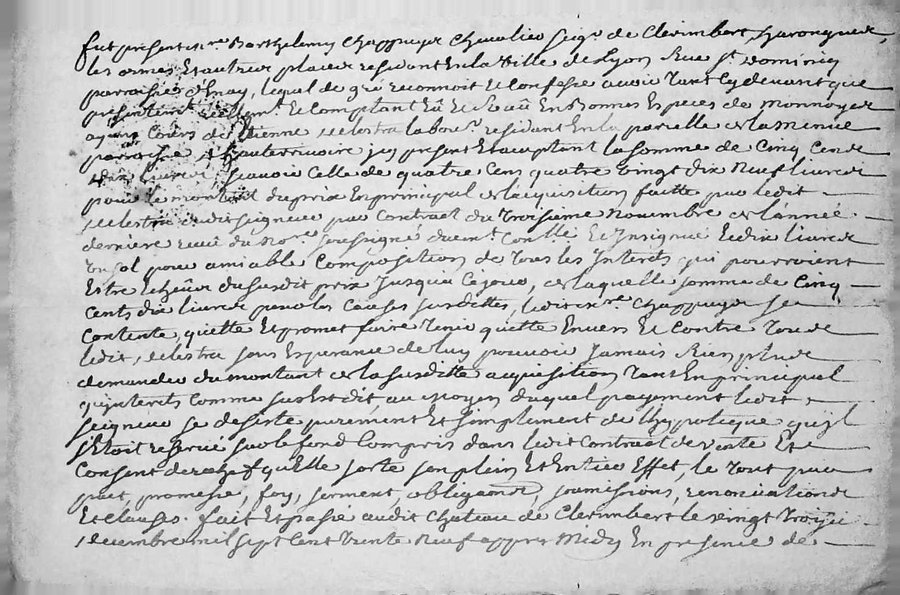 fut présent m.re Barthelemy Chappuys Chevalier seig.r de Clerimbert,
les ormes Et autres places residant En la Ville de Lyon Rue S.t Dominiq
parroisse d'Enay, lequel de gré reconnoit Et Confesse avoir Tant Cy devant que
presentem.t Et Comptant Eû Et Reçû En Bonnes Especes de monnoyes
ayant Cours de Etienne delestra labou.r residant En la parcelle et la Mesme
parroisse icy present Et acceptant la somme de Cinq Cents
dix livres sçavoir Celle de quatre Cens quatre Vingt dix Neuf livres
pour le montant du prix En principal de lacquisition faitte par ledit
delestra dudit seigneur par Contract du Troisieme Novembre de l'année
derniere reçeu du No.re soussigné duem.t Con.llé Et Insignué Et dix livres
Un sol pour amiable Composition de Tous les Interets qui pourroient
Estre Echeus du susdit prix Jusqua Cejour, de laquelle somme de Cinq
Cents dix livres pour les Causes susdittes, ledit m.re Chappuys se
Contente, quitte Et promet faire Tenir quitte Envers Et Contre Tous
ledit delestra sans Esperance de luy pouvoir Jamais Rien plus
demander du montant de la susditte acquisition Tant En principal
qu'interets Comme sus Est dit au moyen duquel payement ledit
seigneur se desiste purement Et simplement de l'hypoteque qu'jl
s'Etoit reservé sur le fond Compris dans ledit Contract de vente Et
Consent qu'Elle sorte son plein Et Entier Effet, le Tout par
pact, promesse, foy, serment, obligaons, soumissions, renonciations
Et clauses. fait Et passé audit Chateau de Clerimbert le vingt Trois
decembre mil sept Cent Trente Neuf apprès Midy En presence de